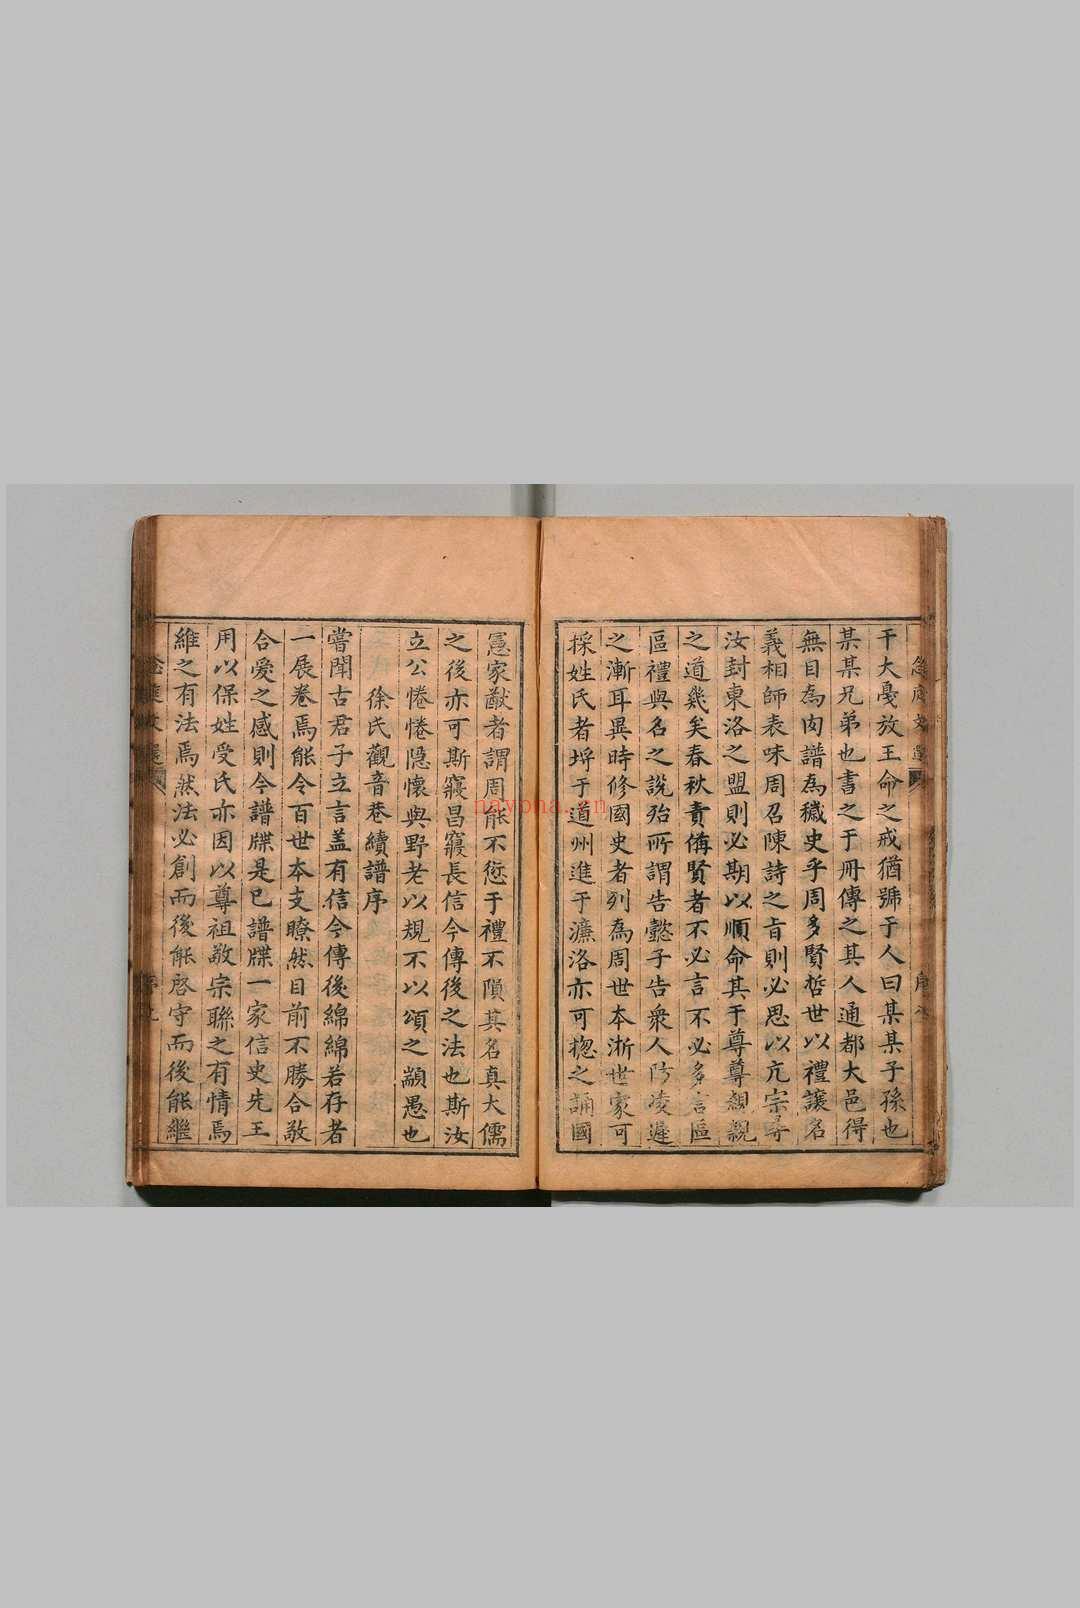 干大戞放王命之戒猶號于人曰某某子孫也
某某兄弟也書之于冊傳之其人通都大邑得
無目為囪譜為穢史乎周多賢哲世以禮讓名
義相師表味周召陳詩之旨則必思以亢宗尋
汝封東洛之盟則必期以順命其于尊尊親親
之道幾矣春秋責備賢者不必言不必多言區
區禮與名之說殆所謂告懿子告衆人防凌遲
之漸耳異時修國史者列為周世本淅世家可
採姓氏者埒于道州進于濂洛亦可揔之誦國
憲家猷者謂周能不愆于禮不隕其名真大儒
之後亦可斯寢昌寢長信今傳後之法也斯汝
立公惓惓隱懷與野老以規不以頌之顓愚也
徐氏觀音巷續譜序
嘗聞古君子立言盖有信今傳後綿綿若存者
一展卷焉能令百世本支瞭然目前不勝合敬
合愛之感則今譜牒是已譜牒一家信史先王
用以保姓受氏亦因以尊祖敬宗聯之有情焉
維之有法焉然法必創而後能啓守而後能繼
nayona.cn